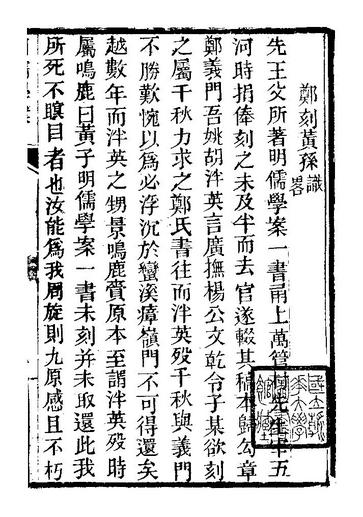 鄭刻黃孫識畧
先王父所著明儒學案一書甬上萬管村先生宰五
河時捐俸刻之未及半而去官遂輟其稿本歸勾章
鄭義門吾姚胡泮英言廣撫楊公文乾令子某欲刻
之屬千秋力求之鄭氏書往而泮英歿千秋與義門
不勝歎惋以爲必浮沉於蠻溪瘴嶺門不可得還矣
越數年而泮英之甥景鳴鹿賫原本至謂泮英歿時
屬鳴鹿曰黃子明儒學案一書未刻并未取還此我
所死不瞑目者也汝能爲我周旋則九原感且不朽